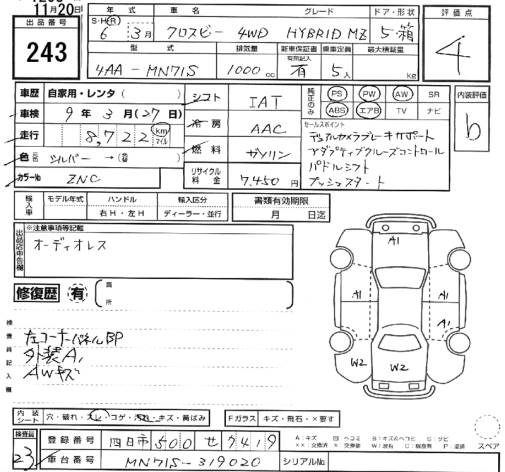 11月20日
出品番号
243
年式 車名 グレード ドア・形状
S・H・R 6年 3月 クロスビー 4WD HYBRID MZ 5・箱
型式 排気量 新車保証書 乗車定員 最大積載量
有無記入
4AA-MN71S 1000cc 有 5人 kg
評価点
4
車歴 自家用・レンタ( )
車検 9年 3月(27日)
走行 8,722 km マイル
色 シルバー →( )
カラーNo ZNC
シフト IAT
冷房 AAC
燃料 ガソリン
リサイクル料金 7,450円
純正のみ PS PW AW SR
ABS エアB TV ナビ
セールスポイント
デュアルカメラブレーキサポート
アダプティブクルーズコントロール
パドルシフト
プッシュスタート
内装評価
b
輸入車 モデル年式 ハンドル 輸入区分
右H・左H ディーラー・並行
書類有効期限
月 日迄
出品店申告欄
※注意事項等記載
オーディオレス
修復歴 有 箇所
検査員記入欄
左コーナーパネルBP
外装A1
AWキズ
A1
A1 A1
W2 W2
内装シート 穴・破れ・スレ・コゲ・汚れ・キズ・黄ばみ
Fガラス キズ・飛石・×要す
A:キズ
スペア
検査員
23
登録番号 四日市 500 せ 7419
車台番号 MN71S-319020
シリアルNo